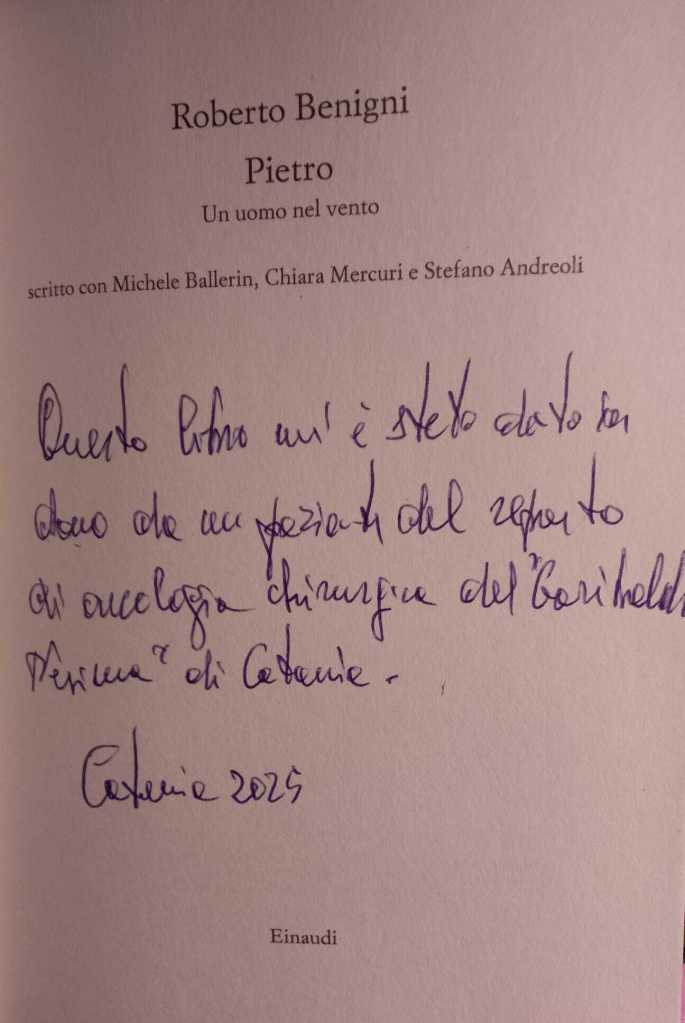 Roberto Benigni
Pietro
Un uomo nel vento
scritto con Michele Ballerin, Chiara Mercuri e Stefano Andreoli
Questo libro mi è stato dato in
dono da un paziente del reparto
di oncologia chirurgica del "Garibaldi
Nesima" di Catania.
Catania 2025
Einaudi